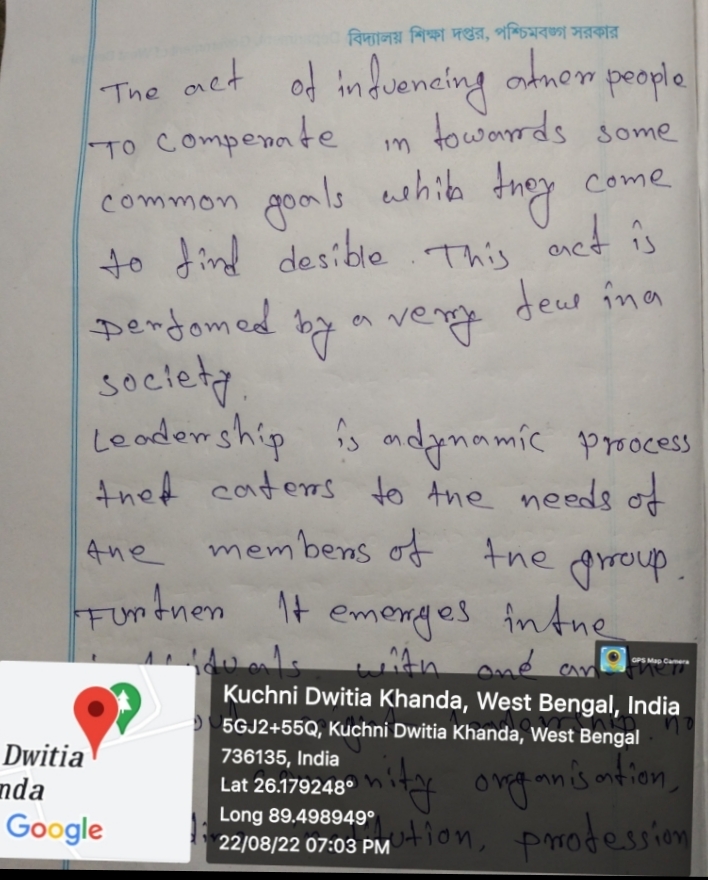 বিদ্যালয় শিক্ষা দপ্তর, পশ্চিমবঙ্গ সরকার
The act of infuencing other people
To comperate in towards some
common goals whih they come
to find desible. This act is
perfomed by a very few in a
society.
Leadership is adynamic process
thet caters to the needs of
the members of the group.
Further It emerges in the
with one another
GPS Map Camera
leadership. no
community organisation,
institution, profession
Dwitia
nda
Google
Kuchni Dwitia Khanda, West Bengal, India
5GJ2+55Q, Kuchni Dwitia Khanda, West Bengal
736135, India
Lat 26.179248°
Long 89.498949°
22/08/22 07:03 PM